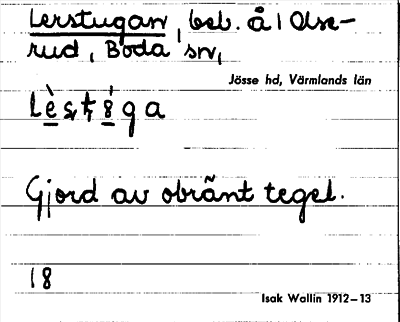 Lerstugan, beb. å l Olse-
rud, Boda sn,
Jösse hd, Värmlands län
Gjord av obränt tegel.
18
Isak Wallin 1912–13